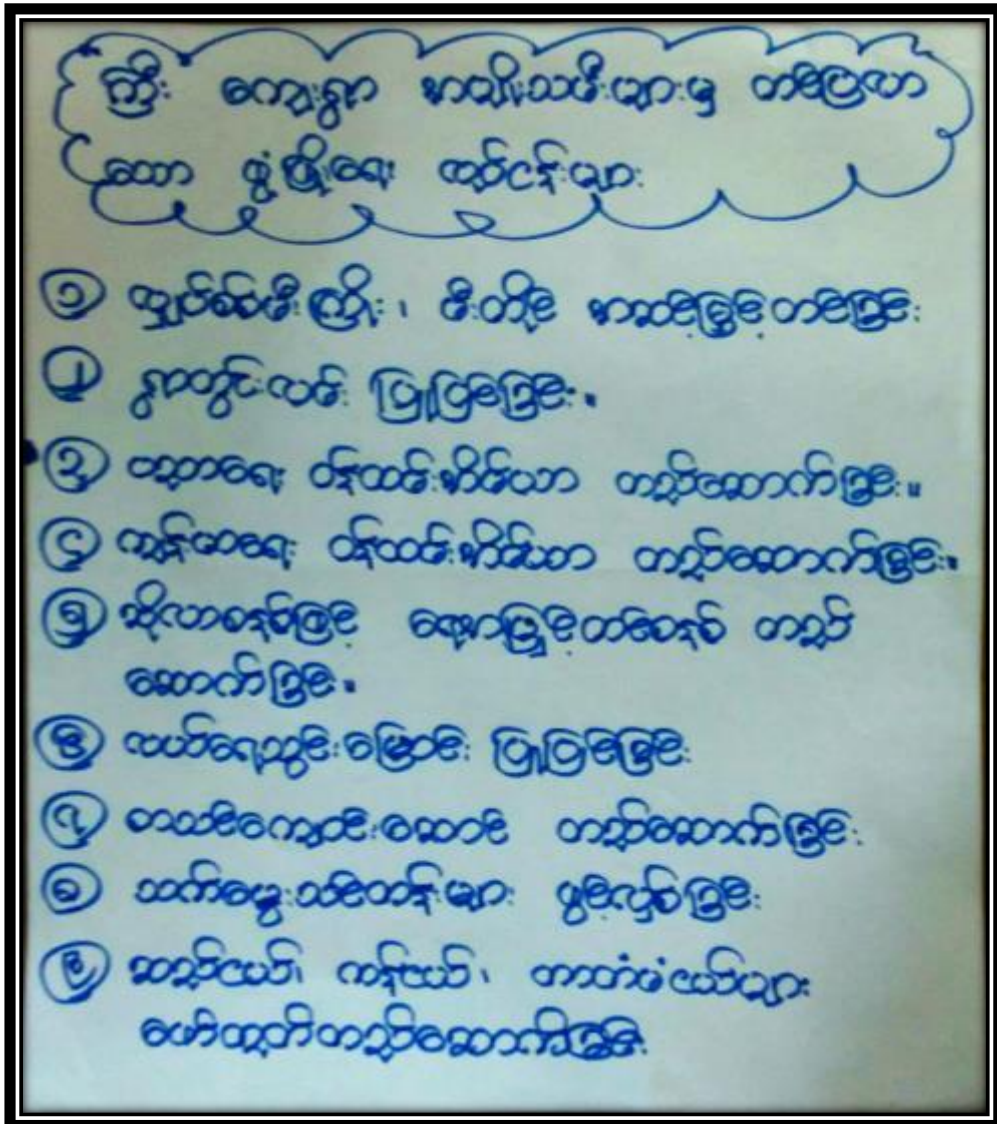 ကြီး ကျေးရွာ အမျိုးသမီးများမှ တင်ပြလာ
သော ဖွံ့ဖြိုးရေး လုပ်ငန်းများ
၁ လျှပ်စစ်မီးကြိုး၊ မီးတိုင် အဆင့်မြှင့်တင်ခြင်း
၂ ရွာတွင်းလမ်း ပြုပြင်ခြင်း။
၃ ပညာရေး ဝန်ထမ်းအိမ်ယာ တည်ဆောက်ခြင်း။
၄ ကျန်းမာရေး ဝန်ထမ်းအိမ်ယာ တည်ဆောက်ခြင်း။
၅ ဆိုလာစနစ်ဖြင့် ရေအားမြှင့်တင်စနစ် တည်
ဆောက်ခြင်း။
၆ လယ်ရေသွင်းမြောင်း ပြုပြင်ခြင်း
၇ စာသင်ကျောင်းဆောင် တည်ဆောက်ခြင်း
၈ သက်မွေးသင်တန်းများ ဖွင့်လှစ်ခြင်း
၉ ဆည်ငယ်၊ ကန်ငယ်၊ တာတံမံငယ်များ
ဖော်ထုတ်တည်ဆောက်ခြင်း